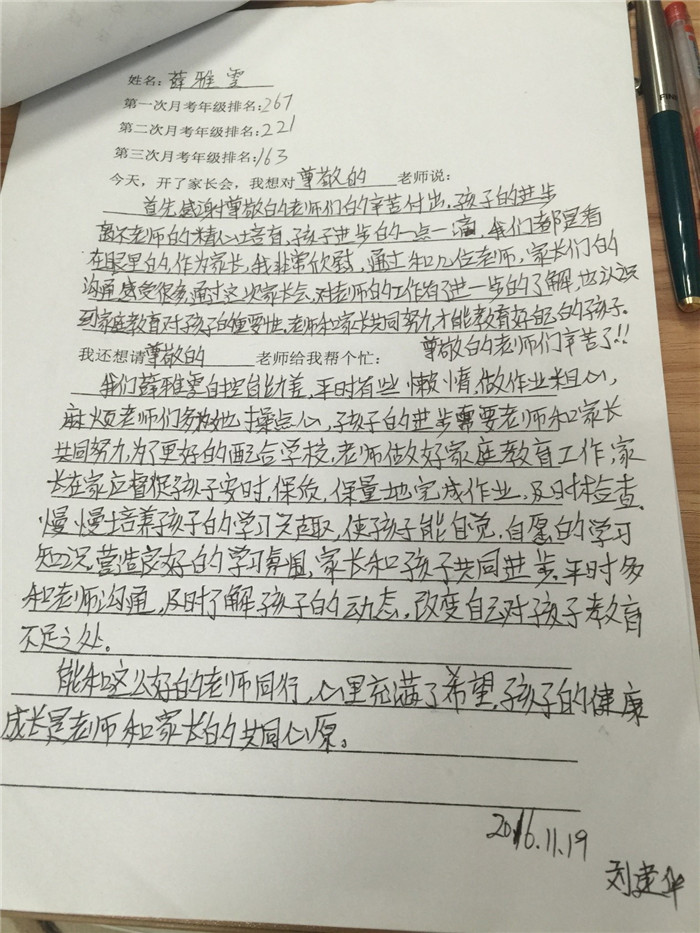 姓名:薛雅雯
第一次月考年级排名:267
第二次月考年级排名:221
第三次月考年级排名:163
今天，开了家长会，我想对尊敬的老师说:
首先感谢尊敬的老师们的辛苦付出,孩子的进步
离不老师的精心培育,孩子进步的一点一滴,我们都是看
在眼里的,作为家长,我非常欣慰,通过和几位老师,家长们的
沟通感受很多,通过这次家长会,对老师的工作有了进一步的了解,也认识
到家庭教育对孩子的重要性,老师和家长共同努力,才能教育好自己的孩子。
尊敬的老师们辛苦了!!
我还想请尊敬的老师给我帮个忙:
我们薛雅雯自控自能差,平时有些懒惰,做作业粗心,
麻烦老师们多为她操点心,孩子的进步需要老师和家长
共同努力,为了更好的配合学校,老师做好家庭教育工作,家
长在家应督促孩子安时,保质,保量地完成作业,及时检查.
慢慢培养孩子的学习兴趣,使孩子能自觉,自愿的学习
知识,营造良好的学习氛围,家长和孩子共同进步.平时多
和老师沟通,及时了解孩子的动态,改变自己对孩子教育
不足之处.
能和这么好的老师同行,心里充满了希望,孩子的健康
成长是老师和家长的共同心愿。
2016.11.19
刘建华
FINE